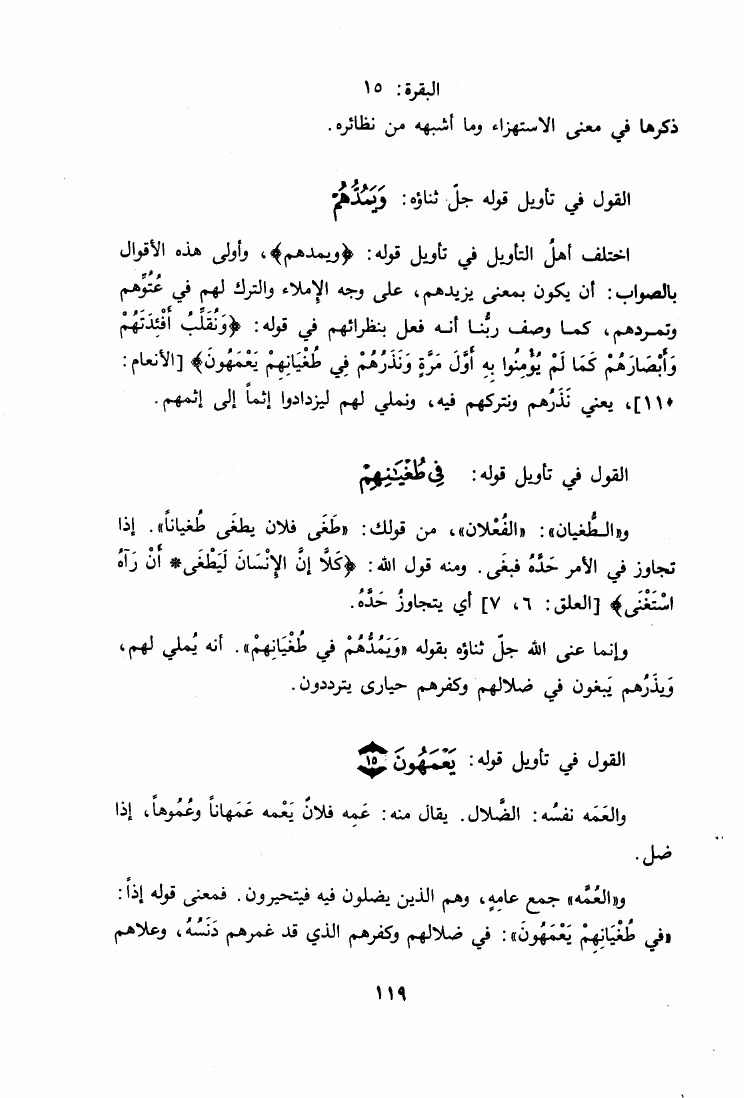 البقرة: ١٥
ذكرها في معنى الاستهزاء وما أشبهه من نظائره.
القول في تأويل قوله جلّ ثناؤه: وَيَمُدُّهُمْ
اختلف أهلُ التأويل في تأويل قوله: ﴿ويمدهم﴾، وأولى هذه الأقوال
بالصواب: أن يكون بمعنى يزيدهم، على وجه الإملاء والترك لهم في عُتُوِّهم
وتمردهم، كما وصف ربُّنا أنه فعل بنظرائهم في قوله: ﴿وَنُقَلِّبُ أَفْئِدَتَهُمْ
وَأَبْصَارَهُمْ كَمَا لَمْ يُؤْمِنُوا بِهِ أَوَّلَ مَرَّةٍ وَنَذَرُهُمْ فِي طُغْيَانِهِمْ يَعْمَهُونَ﴾ [الأنعام:
١١٠]، يعني نَذَرُهم ونتركهم فيه، ونملي لهم ليزدادوا إثماً إلى إثمهم.
القول في تأويل قوله: فِي طُغْيَٰنِهِمْ
و«الطُّغيان»: «الفُعْلان»، من قولك: «طَغَى فلان يطغَى طُغياناً». إذا
تجاوز في الأمر حَدَّهُ فبغى. ومنه قول الله: ﴿كَلَّا إنَّ الإِنْسَانَ لَيَطْغَى* أَنْ رَآهُ
اسْتَغْنَى﴾ [العلق: ٦، ٧] أي يتجاوزُ حَدَّهُ.
وإنما عنى الله جلّ ثناؤه بقوله «وَيَمُدُّهُمْ في طُغْيَانِهِمْ». أنه يُملي لهم،
وَيذَرُهم يَبغون في ضلالهم وكفرهم حيارى يترددون.
القول في تأويل قوله: يَعْمَهُونَ ١٥
والعَمَه نفسُه: الضَّلال. يقال منه: عَمِه فلانٌ يَعْمه عَمَهاناً وعُمُوهاً، إذا
ضل.
و«العُمَّه» جمع عامِهٍ، وهم الذين يضلون فيه فيتحيرون. فمعنى قوله إذاً:
«في طُغْيَانِهِمْ يَعْمَهُونَ»: في ضلالهم وكفرهم الذي قد غمرهم دَنَسُهُ، وعلاهم
١١٩